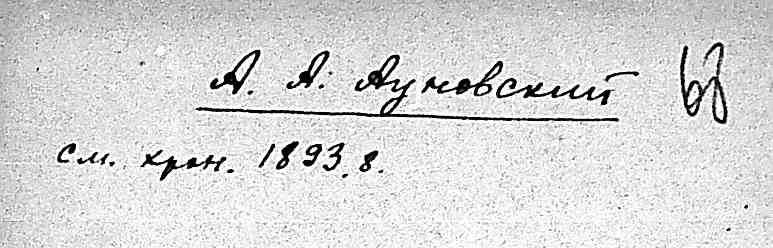 А. А. Ауновский
см. хрон. 1893.8.